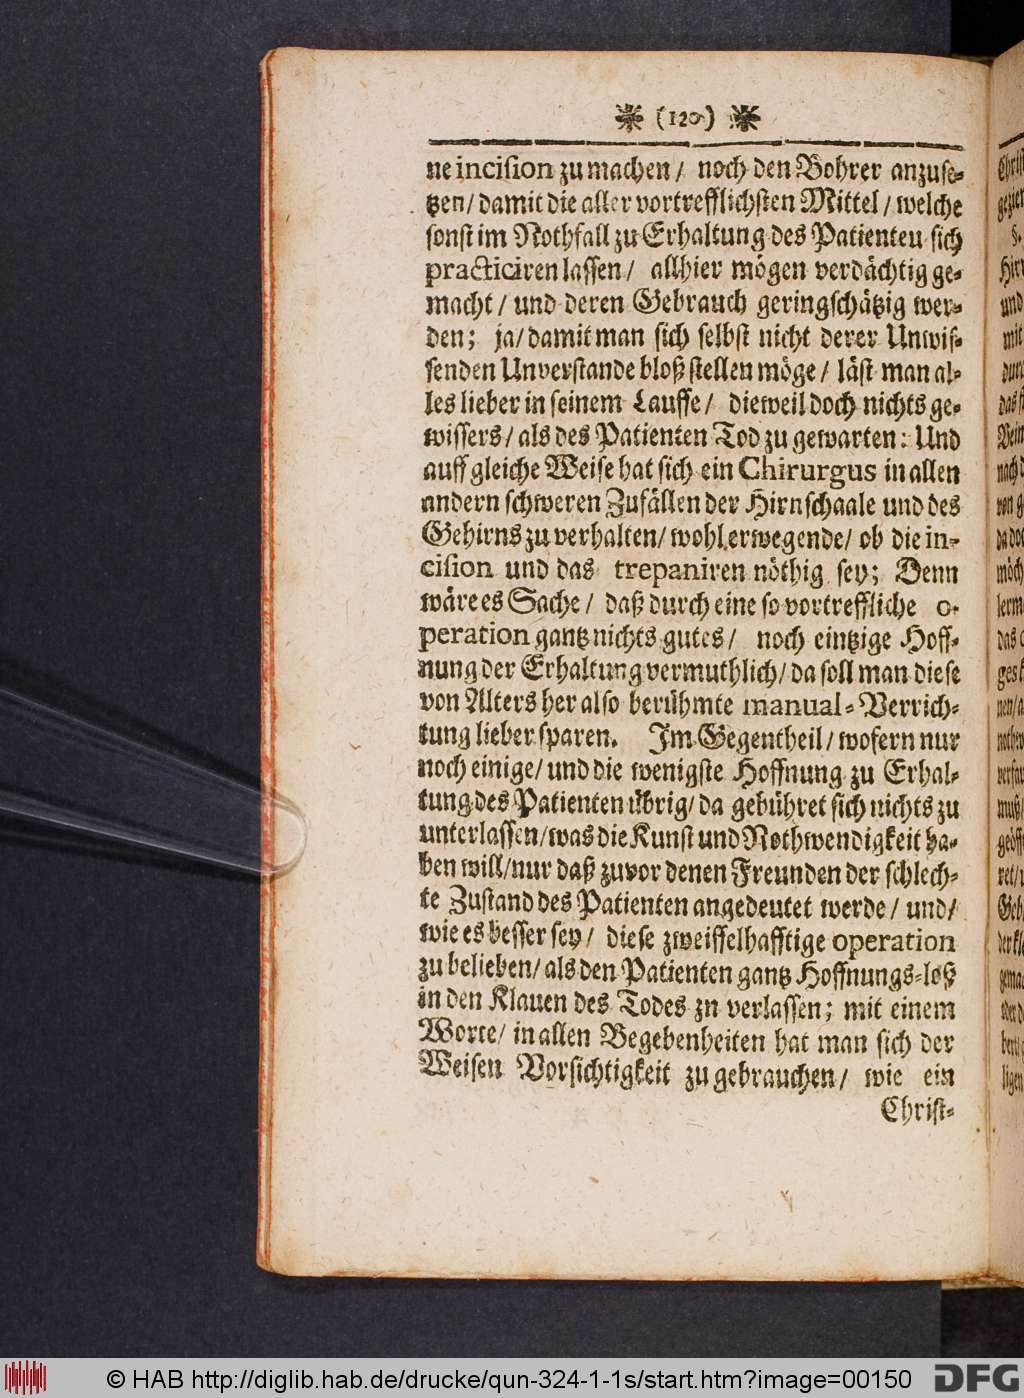 (120)
ne incision zu machen / noch den Bohrer anzuse-
tzen / damit die aller vortrefflichsten Mittel / welche
sonst im Nothfall zu Erhaltung des Patienteu sich
practiciren lassen / allhier mögen verdächtig ge-
macht / und deren Gebrauch geringschätzig wer-
den; ja / damit man sich selbst nicht derer Unwis-
senden Unverstande bloß stellen möge / läst man al-
les lieber in seinem Lauffe / dieweil doch nichts ge-
wissers / als des Patienten Tod zu gewarten: Und
auff gleiche Weise hat sich ein Chirurgus in allen
andern schweren Zufällen der Hirnschaale und des
Gehirns zu verhalten / wohl erwegende / ob die in-
cision und das trepaniren nöthig sey; Denn
wäre es Sache / daß durch eine so vortreffliche o-
peration gantz nichts gutes / noch eintzige Hoff-
nung der Erhaltung vermuthlich / da soll man diese
von Alters her also berühmte manual-Verrich-
tung lieber sparen. Im Gegentheil / wofern nur
noch einige / und die wenigste Hoffnung zu Erhal-
tung des Patienten übrig / da gebühret sich nichts zu
unterlassen / was die Kunst und Nothwendigkeit ha-
ben will / nur daß zuvor denen Freunden der schlech-
te Zustand des Patienten angedeutet werde / und /
wie es besser sey / diese zweiffelhafftige operation
zu belieben / als den Patienten gantz Hoffnungs-loß
in den Klauen des Todes zn verlassen; mit einem
Worte / in allen Begebenheiten hat man sich der
Weisen Vorsichtigkeit zu gebrauchen / wie ein
Christ-
© HAB http://diglib.hab.de/drucke/qun-324-1-1s/start.htm?image=00150
DFG